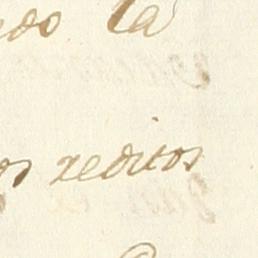 ndo la
os reditos